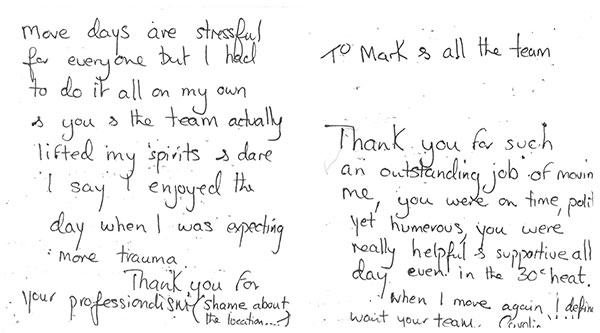 Move days are stressful
for everyone but I had
to do it all on my own
& you & the team actually
lifted my spirits & dare
I say I enjoyed the
day when I was expecting
more trauma.
Thank you for
your professionalism (shame about
the location...)
To Mark & all the team
Thank you for such
an outstanding job of movin
me, you were on time, polit
yet humerous, you were
really helpful & supportive all
day even in the 30°c heat.
When I move again I define
want your team.